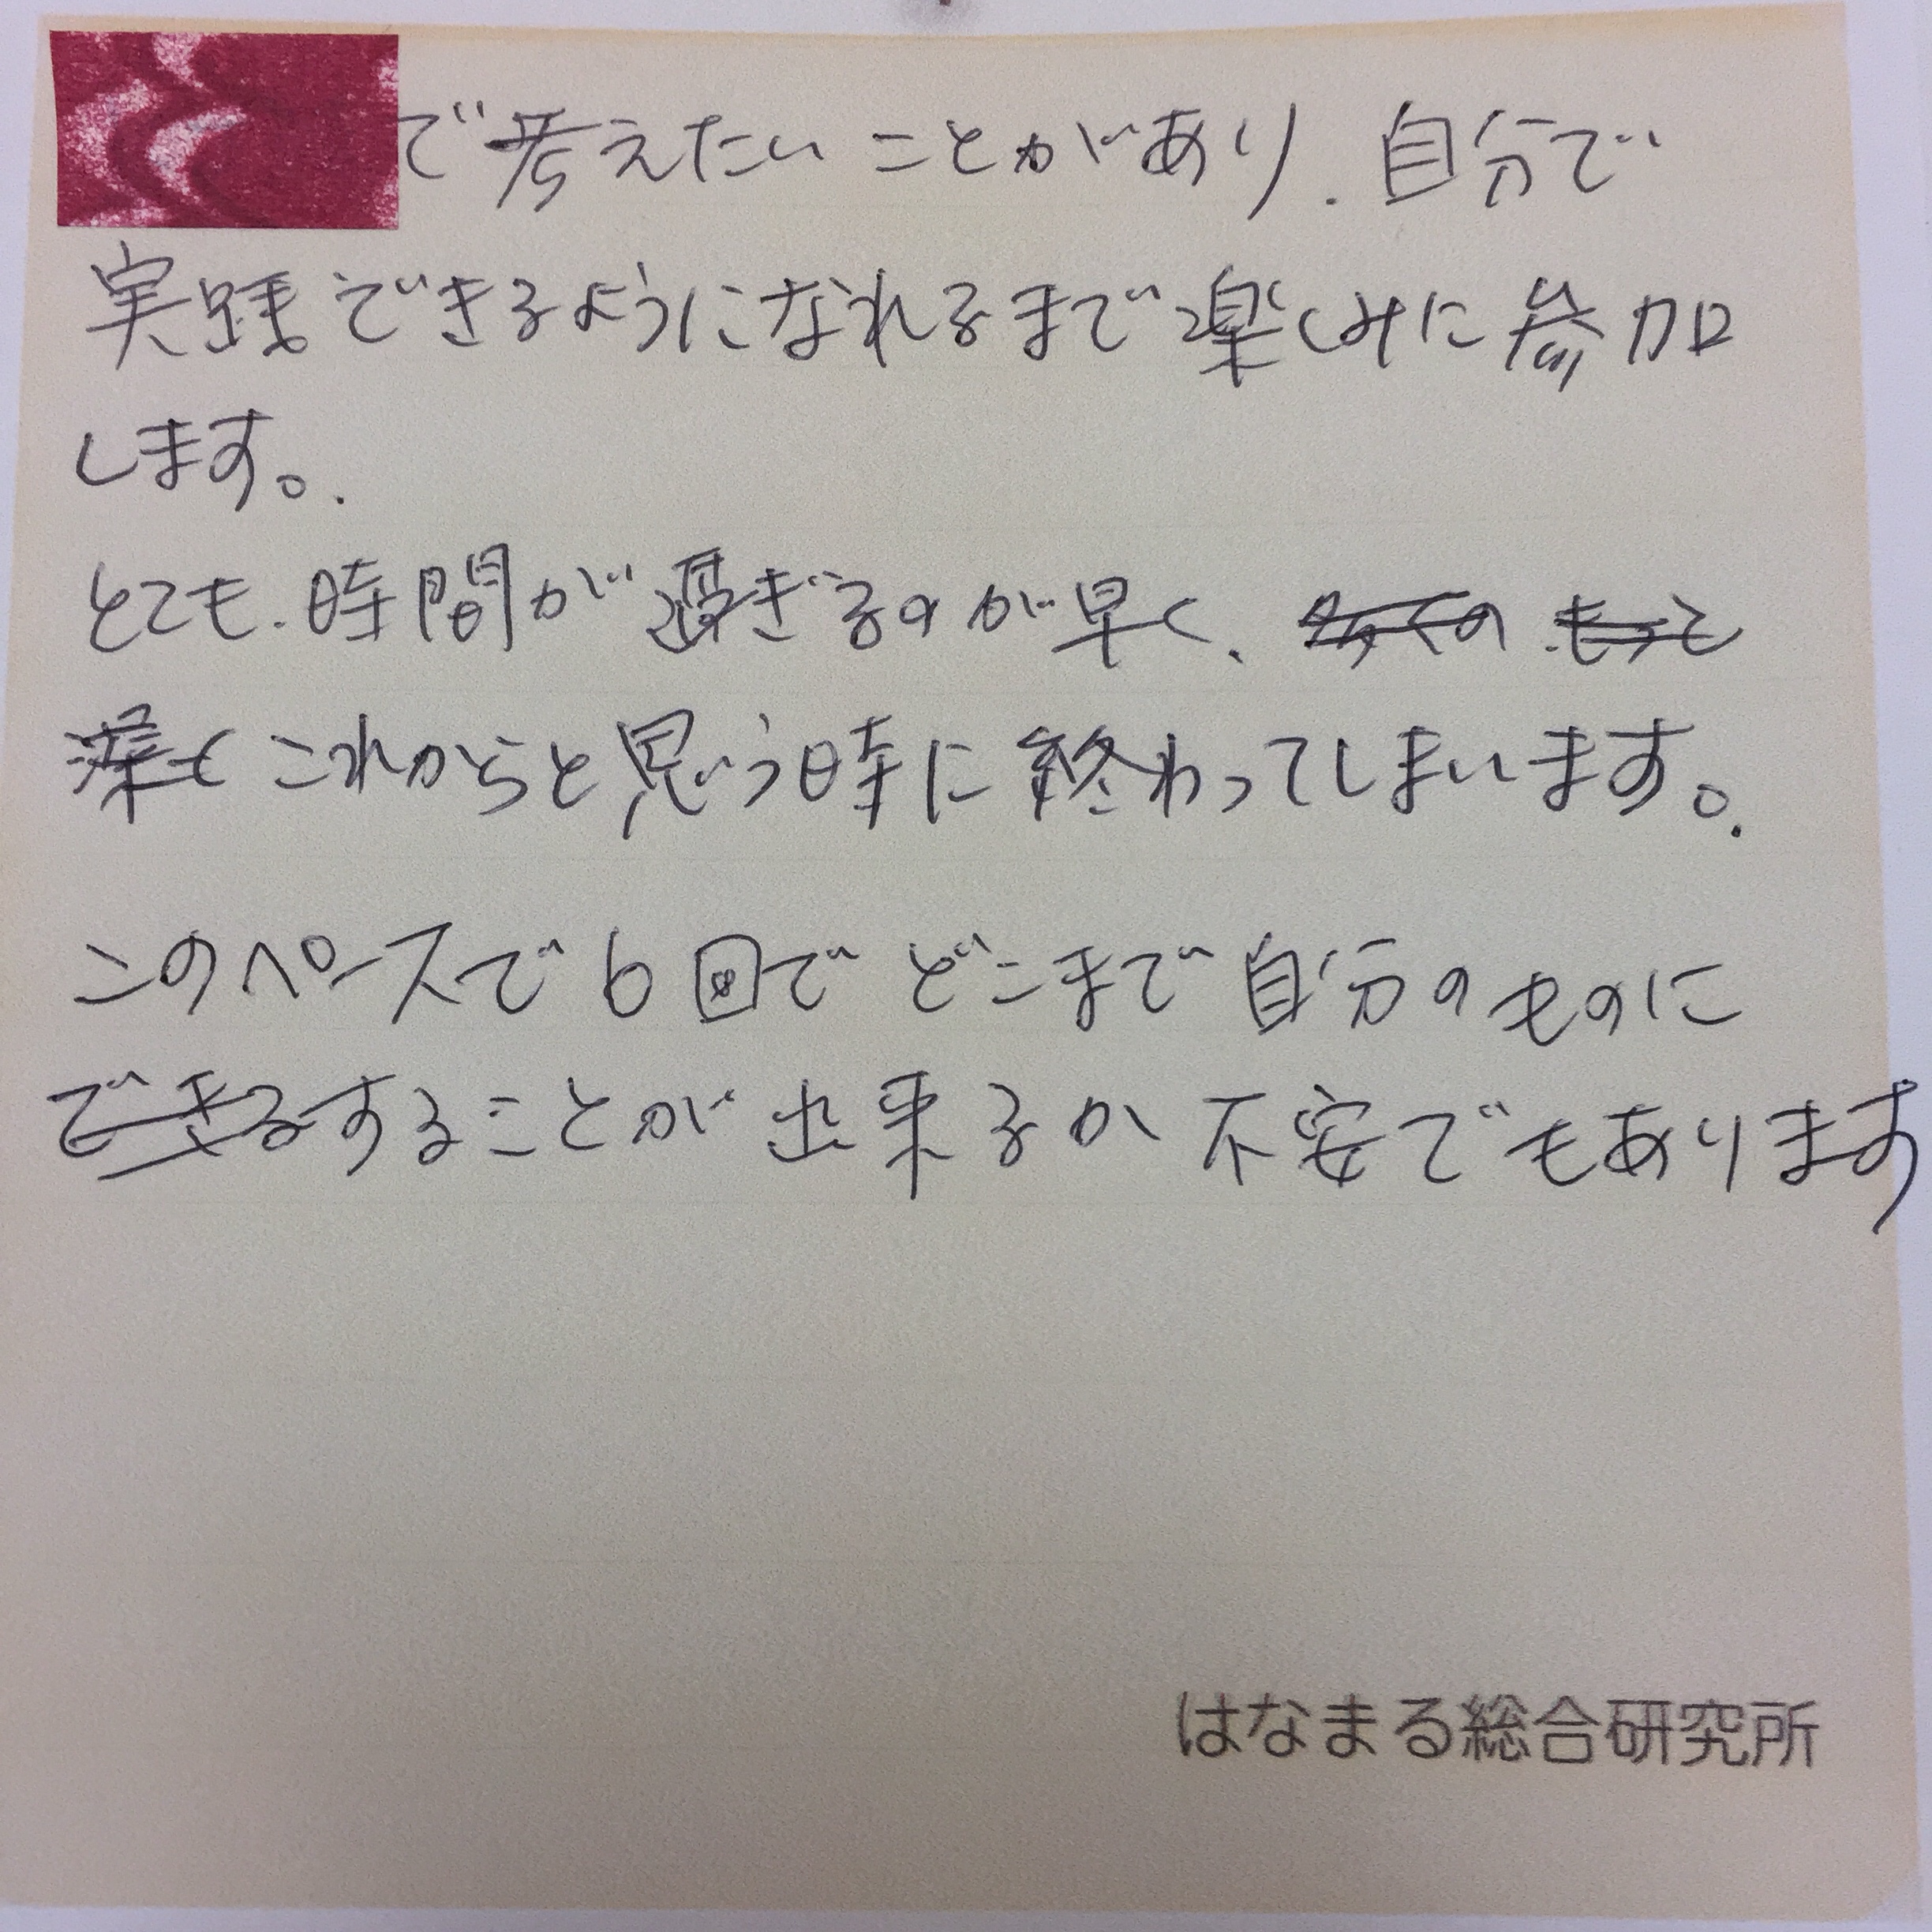 で考えたいことがあり、自分で
実践できるようになれるまで楽しみに参加
します。
とても、時間が過ぎるのが早く、多くの もっと
深く これからと思う時に終わってしまいます。
このペースで6回でどこまで自分のものに
できるすることが出来るか不安でもあります
はなまる総合研究所